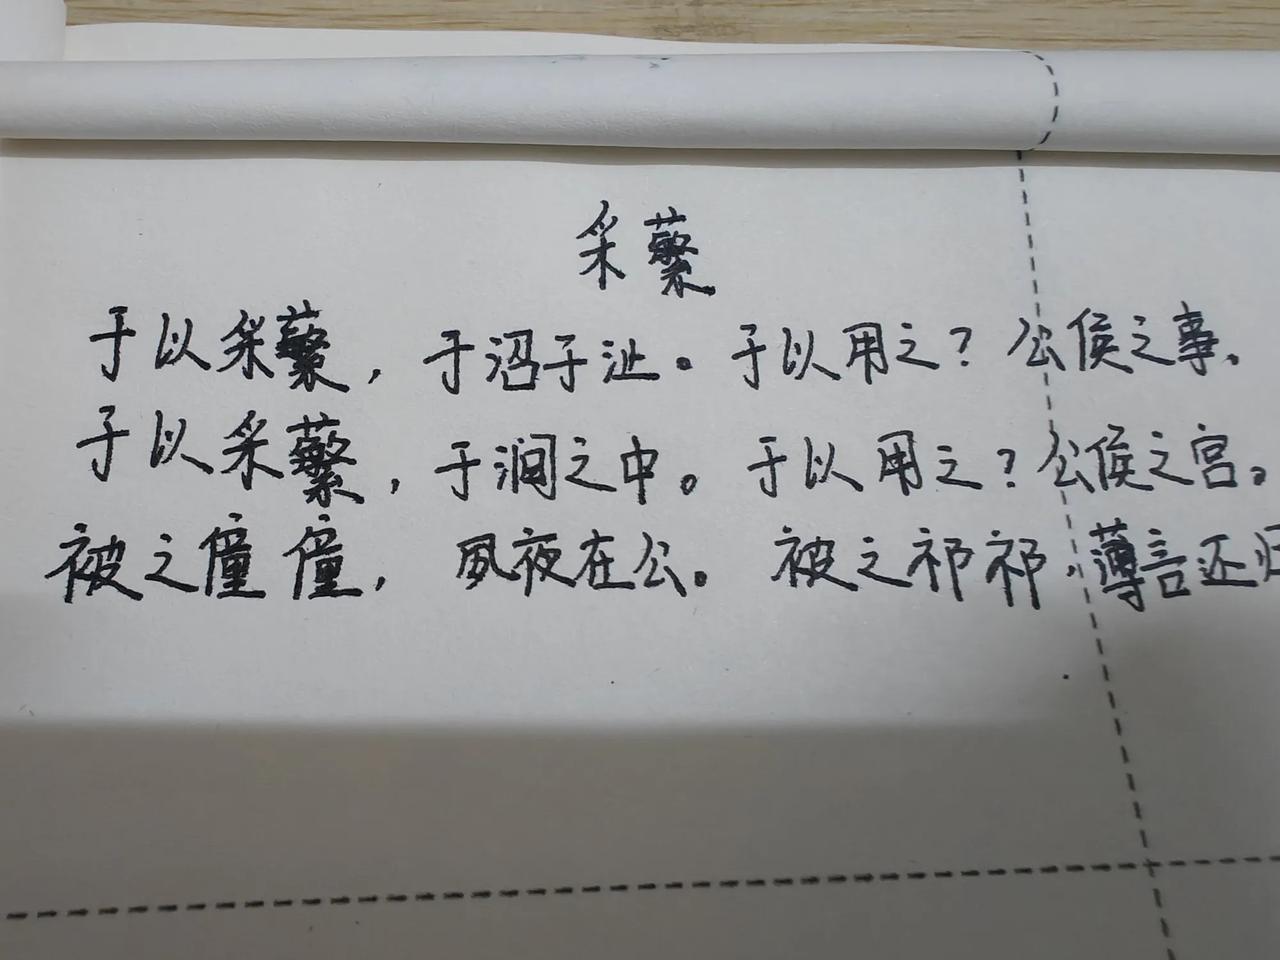 采蘩
于以采蘩，于沼于沚。于以用之？公侯之事。
于以采蘩，于涧之中。于以用之？公侯之宫。
被之僮僮，夙夜在公。被之祁祁，薄言还归